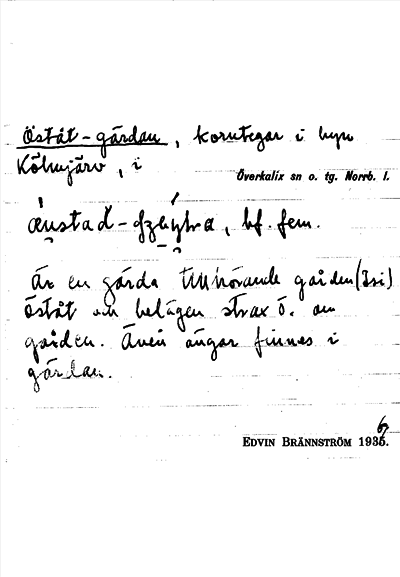 Öståt-gärdan, korntegar i byn
Kölmjärv, i
Överkalix sn o. tg. Norrb. l.
bf. fem.
är en gärda tillhörande gården (Isi)
Öståt och belägen strax ö. om
gården. Även ängar finnes i
gärdan.
EDVIN BRÄNNSTRÖM 1936.